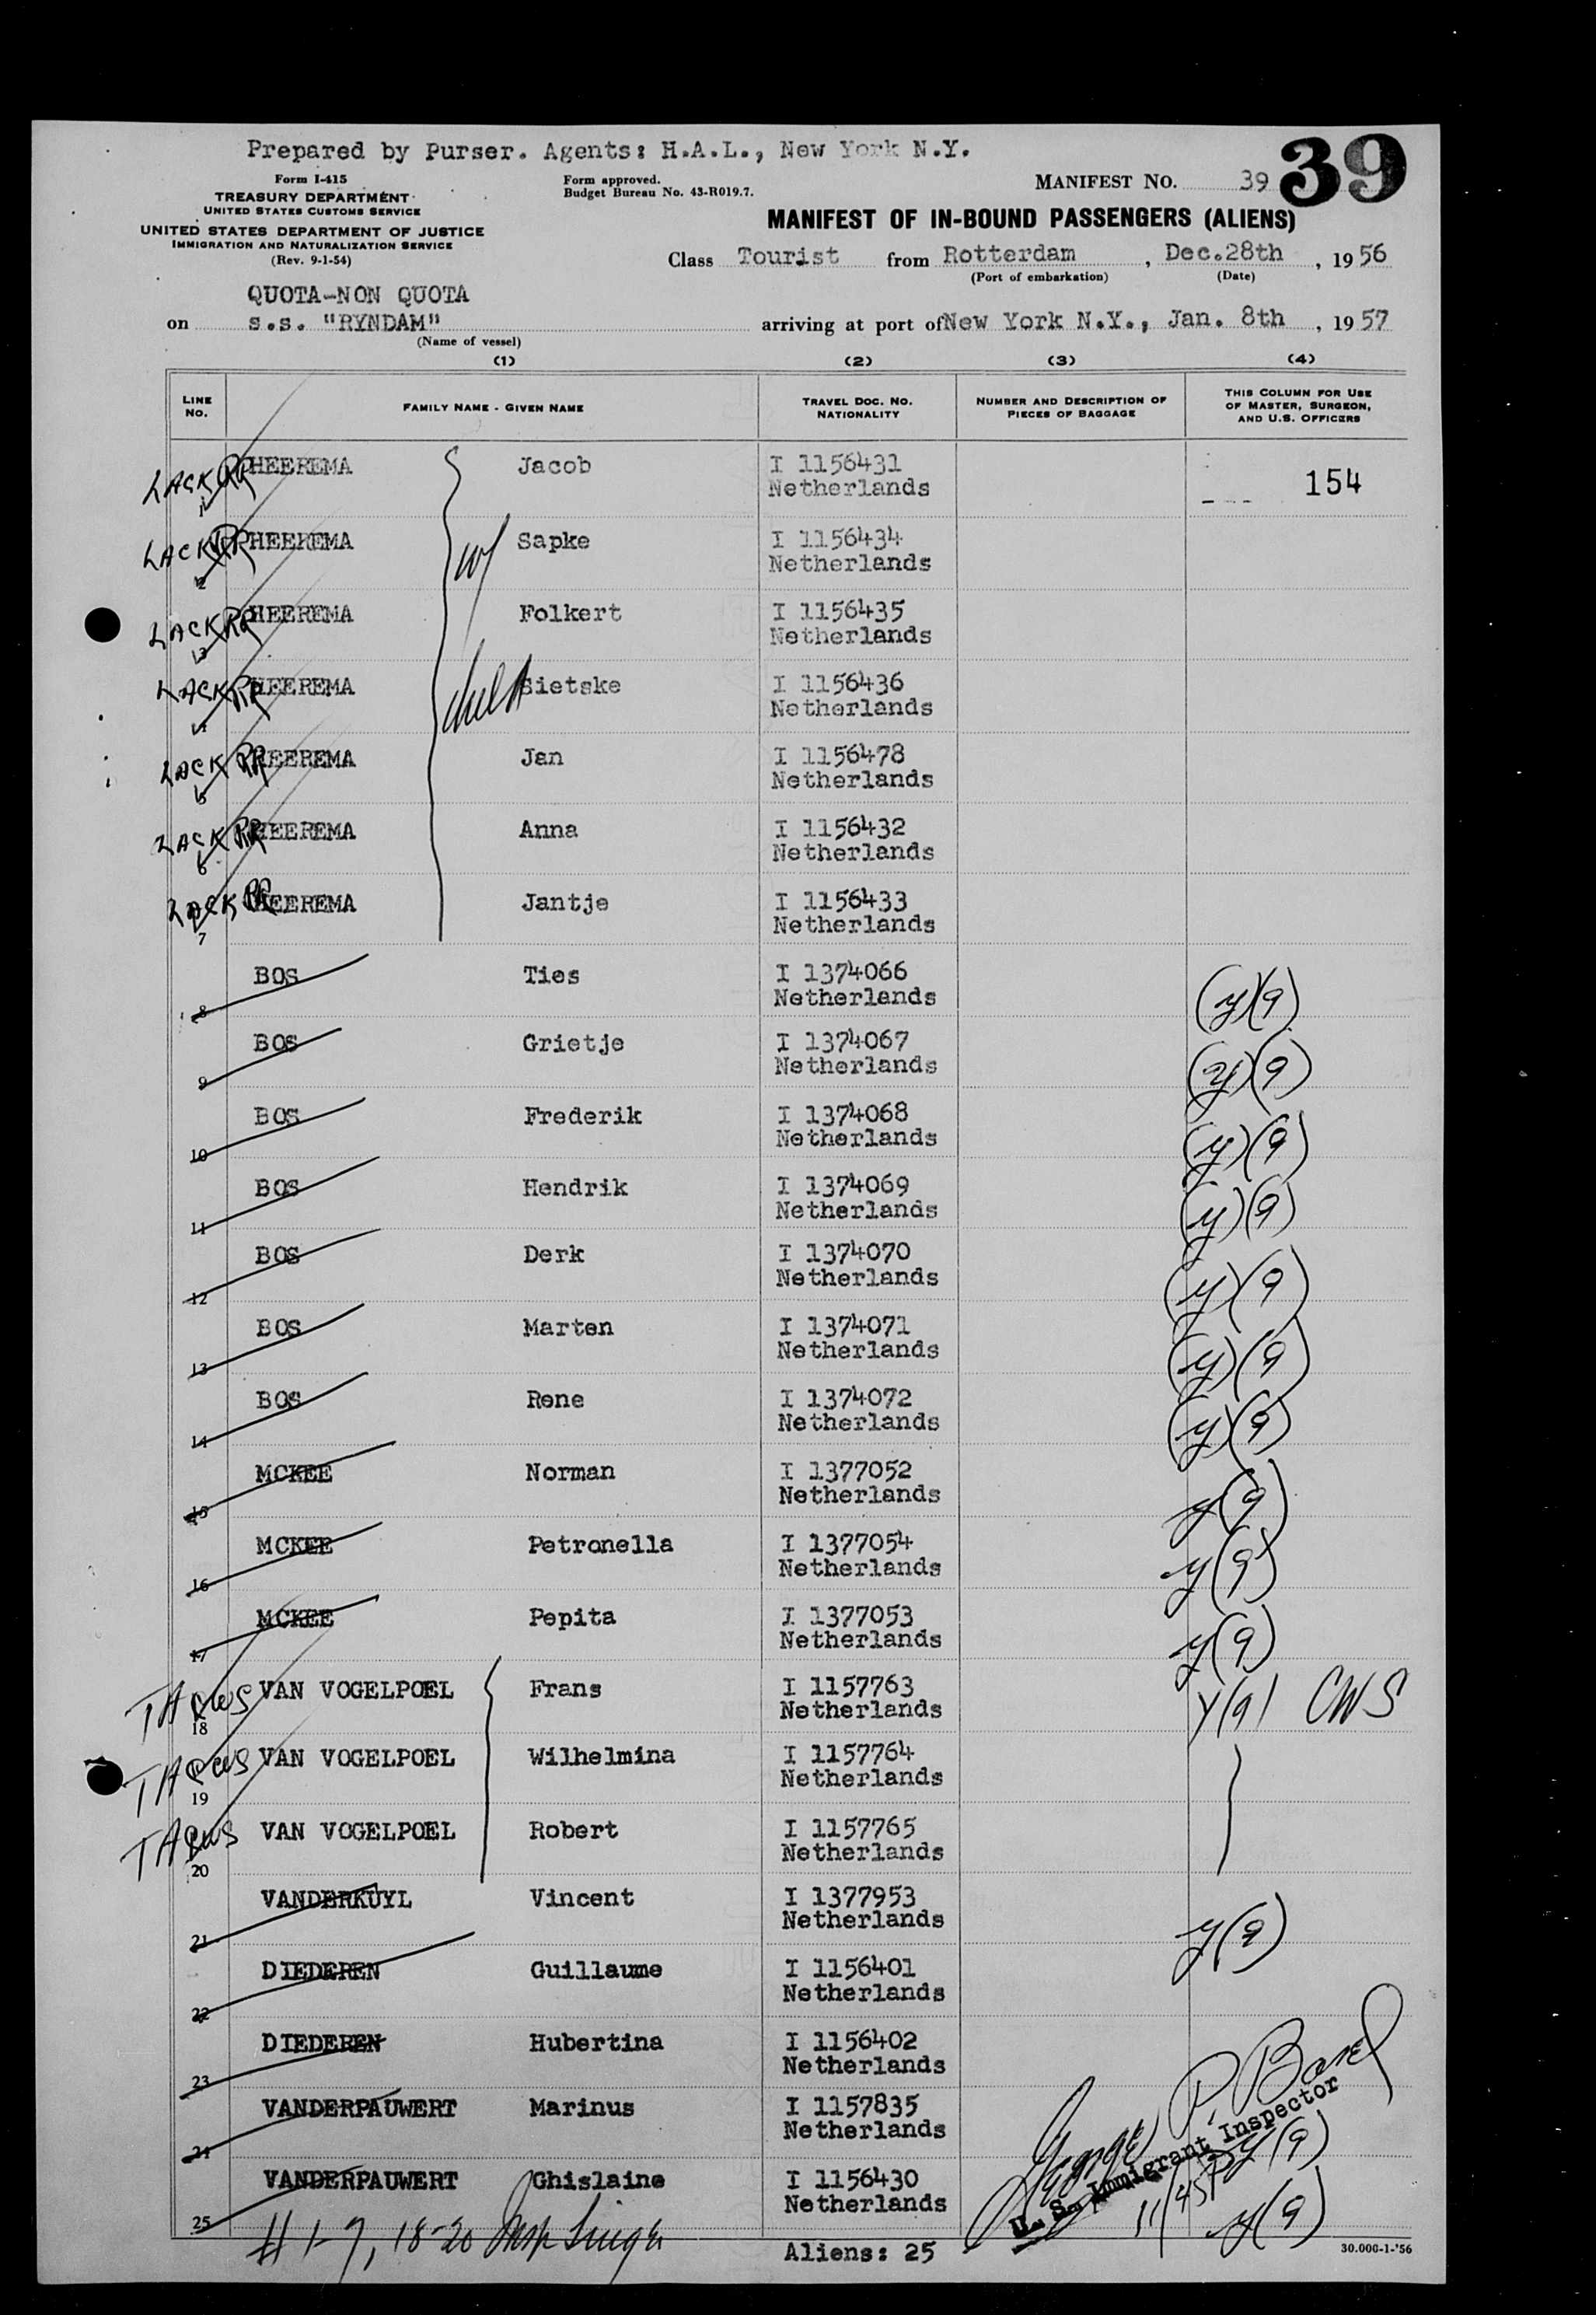 Prepared by Purser. Agents: H.A.L., New York N.Y.
39
Form I-415
TREASURY DEPARTMENT
UNITED STATES CUSTOMS SERVICE
UNITED STATES DEPARTMENT OF JUSTICE
IMMIGRATION AND NATURALIZATION SERVICE
(Rev. 9-1-54)
Form approved.
Budget Bureau No. 43-R019.7.
MANIFEST NO. 39
MANIFEST OF IN-BOUND PASSENGERS (ALIENS)
Class Tourist from Rotterdam, Dec.28th, 1956
(Port of embarkation) (Date)
QUOTA-NON QUOTA
on s.s. "RYNDAM" arriving at port of New York N.Y., Jan. 8th, 1957
(Name of vessel)
(1) (2) (3) (4)
LINE NO.
FAMILY NAME - GIVEN NAME
TRAVEL DOC. NO.
NATIONALITY
NUMBER AND DESCRIPTION OF
PIECES OF BAGGAGE
THIS COLUMN FOR USE
OF MASTER, SURGEON,
AND U.S. OFFICERS
LACK RR HEEREMA Jacob I 1156431 154
1 Netherlands
LACK RR HEEREMA w/ Sapke I 1156434
2 Netherlands
LACK RR HEEREMA Folkert I 1156435
3 Netherlands
LACK RR HEEREMA Sietske I 1156436
4 Netherlands
LACK RR HEEREMA Jan I 1156478
5 Netherlands
LACK RR HEEREMA Anna I 1156432
6 Netherlands
LACK RR HEEREMA Jantje I 1156433
7 Netherlands
BOS Ties I 1374066
8 Netherlands (y)(9)
BOS Grietje I 1374067
9 Netherlands (y)(9)
BOS Frederik I 1374068
10 Netherlands (y)(9)
BOS Hendrik I 1374069
11 Netherlands (y)(9)
BOS Derk I 1374070
12 Netherlands (y)(9)
BOS Marten I 1374071
13 Netherlands (y)(9)
BOS Rene I 1374072
14 Netherlands (y)(9)
MCKEE Norman I 1377052
15 Netherlands y(9)
MCKEE Petronella I 1377054
16 Netherlands y(9)
MCKEE Pepita I 1377053
17 Netherlands y(9)
TA CWS VAN VOGELPOEL Frans I 1157763
18 Netherlands Y(9) CWS
TA CWS VAN VOGELPOEL Wilhelmina I 1157764
19 Netherlands
TA CWS VAN VOGELPOEL Robert I 1157765
20 Netherlands
VANDERKUYL Vincent I 1377953
21 Netherlands y(9)
DIEDEREN Guillaume I 1156401
22 Netherlands
DIEDEREN Hubertina I 1156402
23 Netherlands
VANDERPAUWERT Marinus I 1157835
24 Netherlands y(9)
VANDERPAUWERT Ghislaine I 1156430
25 Netherlands y(9)
George P.
U. S. Immigrant Inspector
# 1-7, 18-20 Insp
Aliens: 25
30.000-1-'56